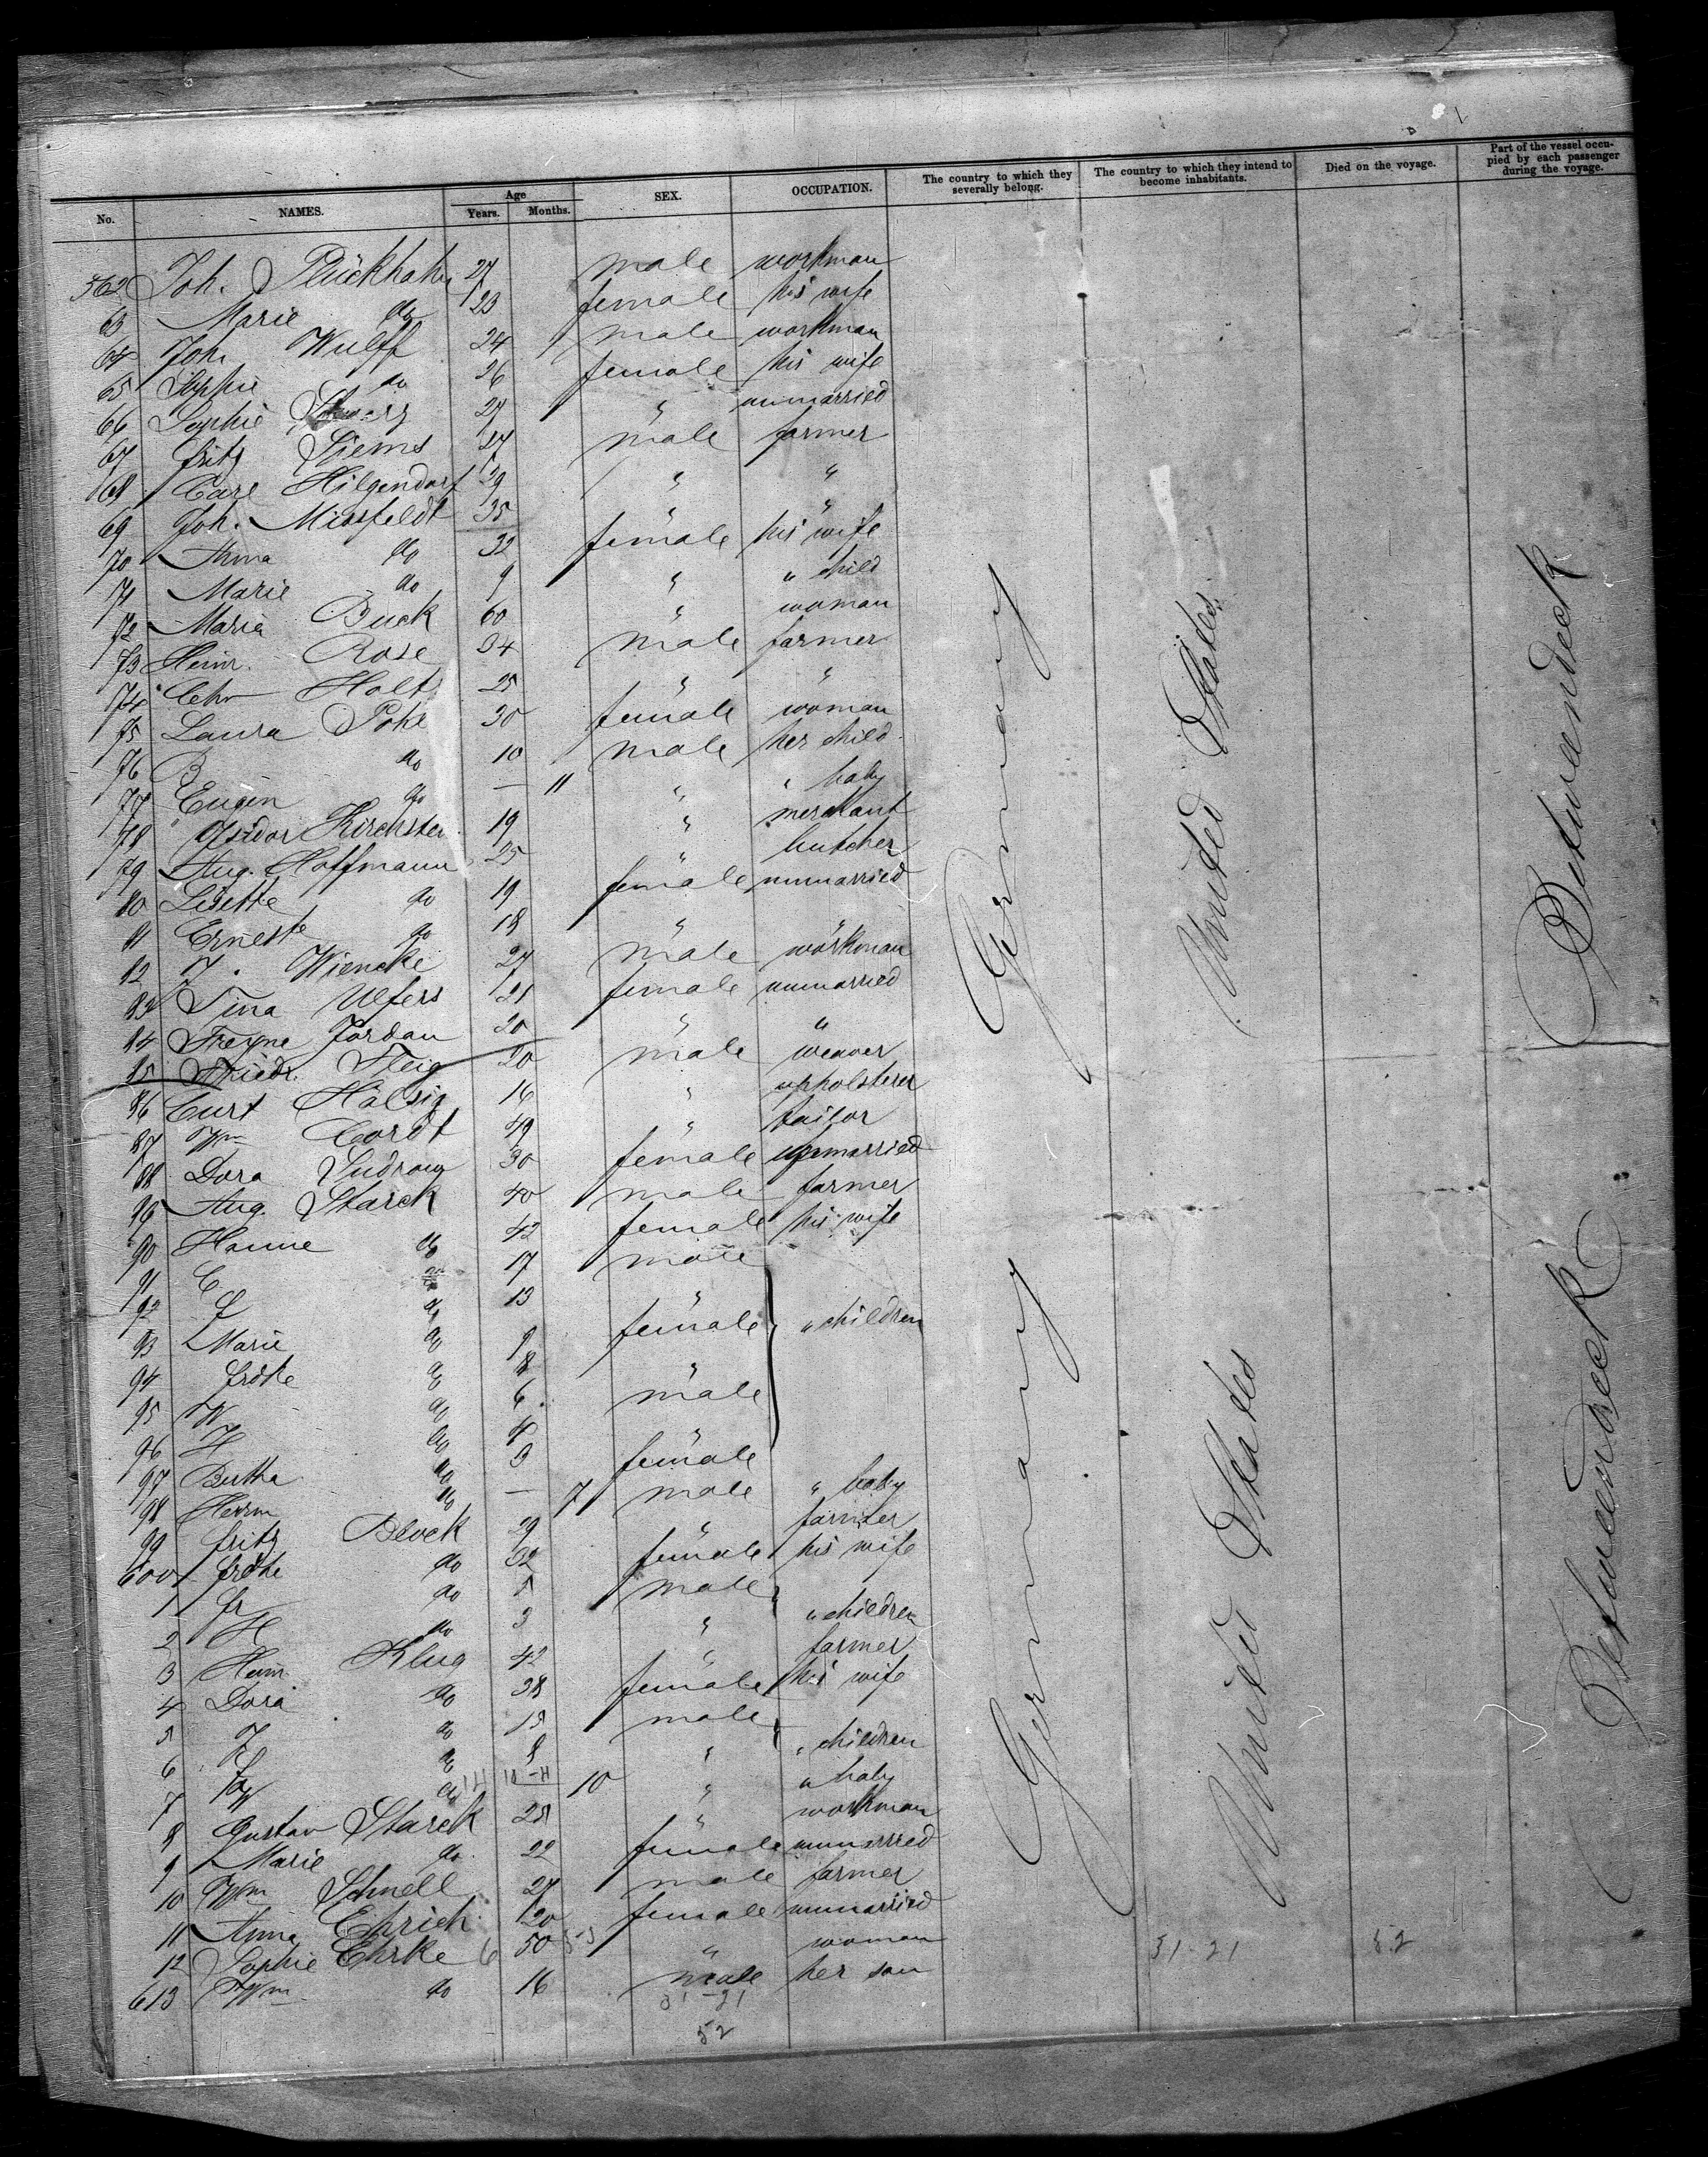 No. NAMES. Age Years. Months. SEX. OCCUPATION. The country to which they severally belong. The country to which they intend to become inhabitants. Died on the voyage. Part of the vessel occupied by each passenger during the voyage.
562 Joh. Plückhahn 27 male workman
63 Marie do 23 female his wife
64 Joh. Wulff 24 male workman
65 Sophie do 26 female his wife
66 Sophie 27 " unmarried
67 Fritz Siems 27 male farmer
68 Carl Hilgendorf 29 " "
69 Joh. Missfeldt 35 " "
70 Anna do 32 female his wife
71 Marie do 9 " " child
72 Maria Buck 60 " woman
73 Heinr. Rose 34 male farmer
74 Chr Holt 25 " "
75 Laura Pohl 30 female woman
76 B do 10 male her child
77 Eugen do — 11 " " baby
78 Isidor Kirchster 19 " merchant
79 Aug. Hoffmann 25 " butcher
80 Lisette do 19 female unmarried
81 Erneste do 18 " "
82 J. Wiencke 27 male workman
83 Tina Ulfers 21 female unmarried
84 Jordan 20 " "
85 Friedr. Fleig 20 male weaver
86 Curt 16 " upholsterer
87 Wm Cordt 49 " tailor
88 Dora 30 female unmarried
89 Aug. Starck 40 male farmer
90 Hanne do 42 female his wife
91 E do 17 male
92 do 13 "
93 Marie do 9 female " children
94 Frdke do 8 "
95 W do 6 male
96 H do 4 "
97 Bertha do 3 female
98 Herrm do — 7 male " baby
99 Fritz Block 29 " farmer
600 Frdke do 32 female his wife
1 Fr do 5 male
2 H do 3 " " children
3 Heinr Klug 42 " farmer
4 Dora do 38 female his wife
5 J do 15 male
6 do 8 " " children
7 W do — 10 " " baby
8 Gustav Starck 25 " workman
9 Marie do 22 female unmarried
10 Wm Schnell 27 male farmer
11 Anna Ehrich 20 female unmarried
12 Sophie Ehrke 50 " woman
613 Wm do 16 male her son
31-21
52
31-21
52
Germany
United States
Zwischendeck
Germany
United States
Zwischendeck